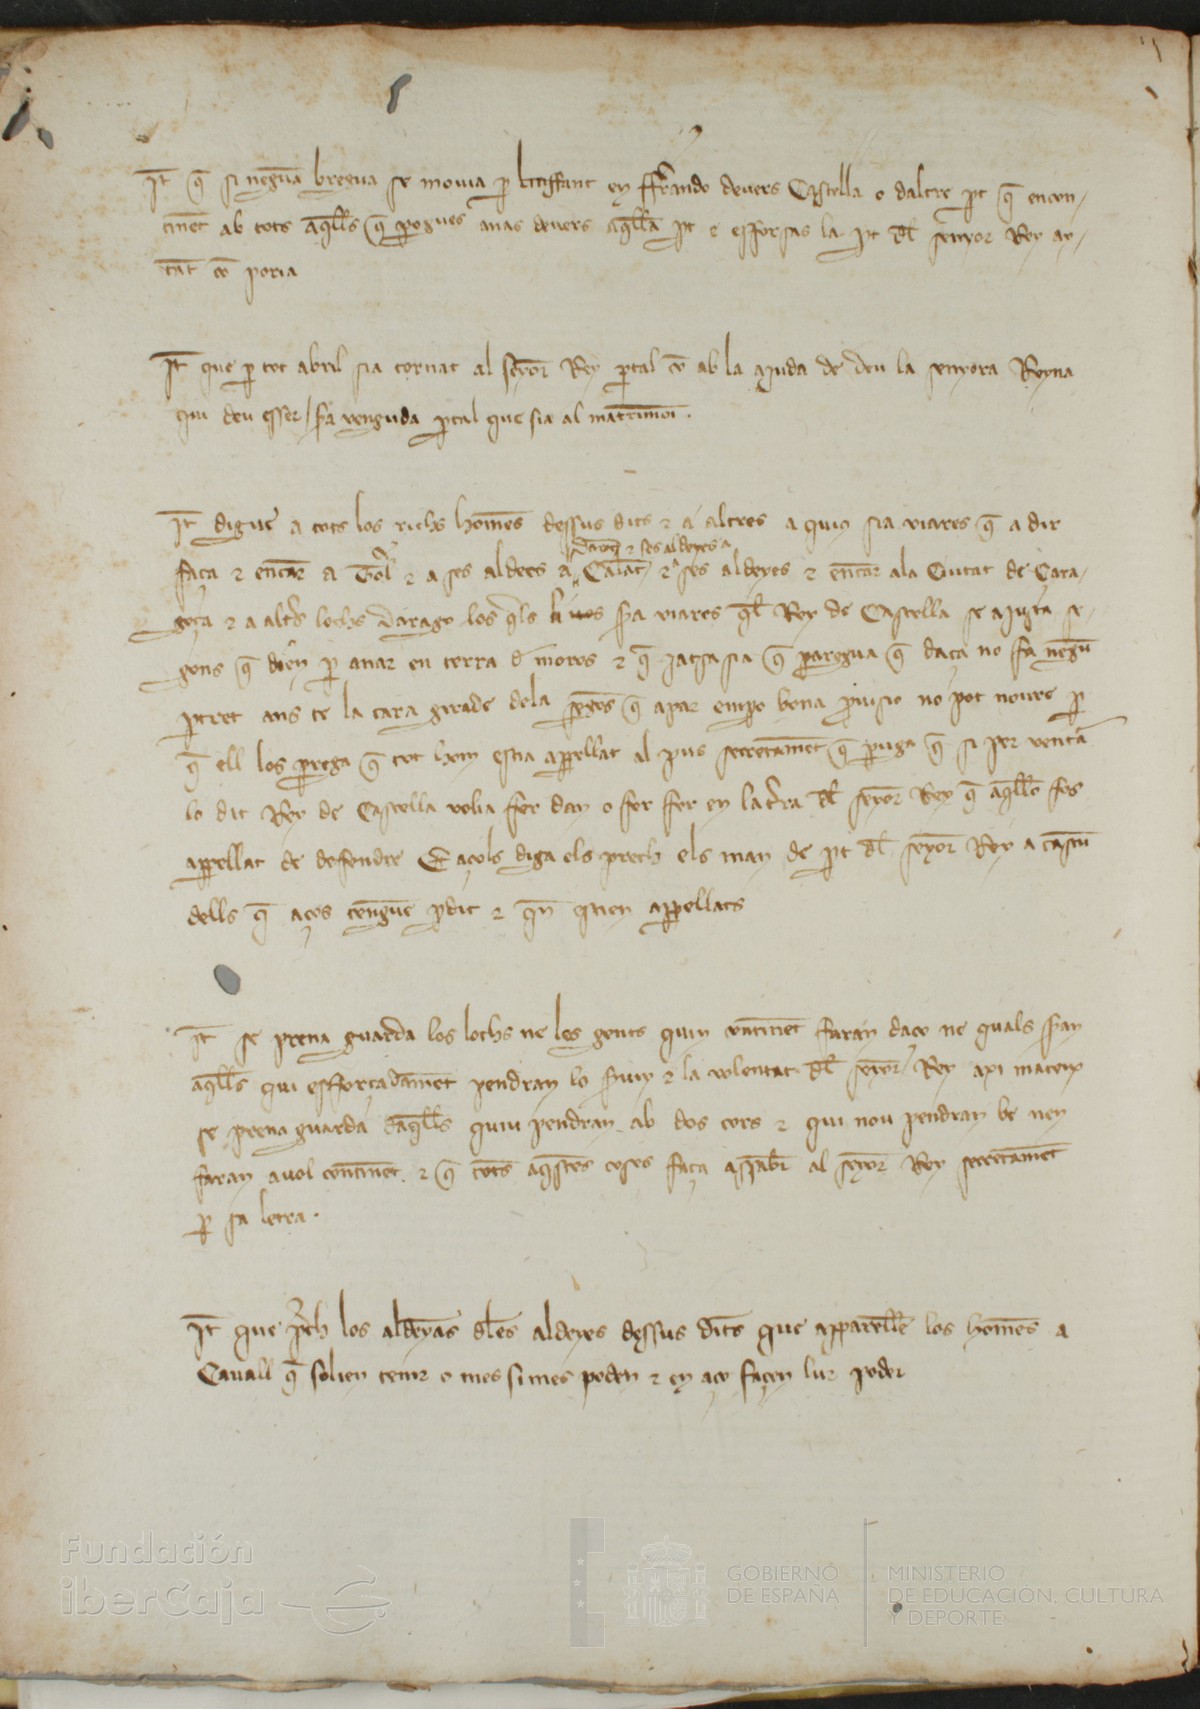 It q si neguna bregua se mouia p linffant en ffrando deuers Castella o daltre pt q encon-
tinet ab tots aqlls q pogues anas deuers aqlla pt e esforsas la pt dl senyor Rey ay-
tat co poria
It que p tot abril sia tornat al senyor Rey ptal co ab la ajuda de deu la senyora Reyna
qui deu esser sa venguda ptal que sia al matrimoni.
It digue a tots los richs homes dessus dits e a altres a quiy sia viares q a dir
Daroq e ses aldeyes a
faça e encar a Tol e a ses aldees a Calat e a ses aldeyes e encar ala Ciutat de Cara-
goça e a altrs lochs Darago los qls viares ql Rey de Castella se ajusta se-
gons q dien p anar en terra d moros e q jatsasia q paregua q daça no fa negu
ptret ans te la cara girade dela q apar empo bona puisio no pot noure p
q ell los prega q tot hom estia appellat al pus secretament q puga q si per ventura
lo dit Rey de Castella volia ffer dan o fer fer en la terra dl senyor Rey q aqllo fos
appellat de defendre E açols diga els prech els man de pt dl senyor Rey a cascu
dells q aços tengue pdit e qn stien appellats
It se prena guarda los lochs ne les gents quin continet faran daço ne quals
aqlls qui esfforçadamet pendran lo seruiy e la volentat dl senyor Rey axi mateix
se prena guarda daqlls quiu pendran ab dos cors e qui nou pendran be ney
faran auol continet e q totes aqstes coses faça asaber al senyor Rey secretamet
p sa letra.
It que prech los aldeyas dles aldeyes dessus dits que apparelle los homes a
Cauall q solien tenir o mes si mes poden e en aço façen lur poder
Fundación
iberCaja
GOBIERNO
DE ESPAÑA
MINISTERIO
DE EDUCACIÓN, CULTURA
Y DEPORTE